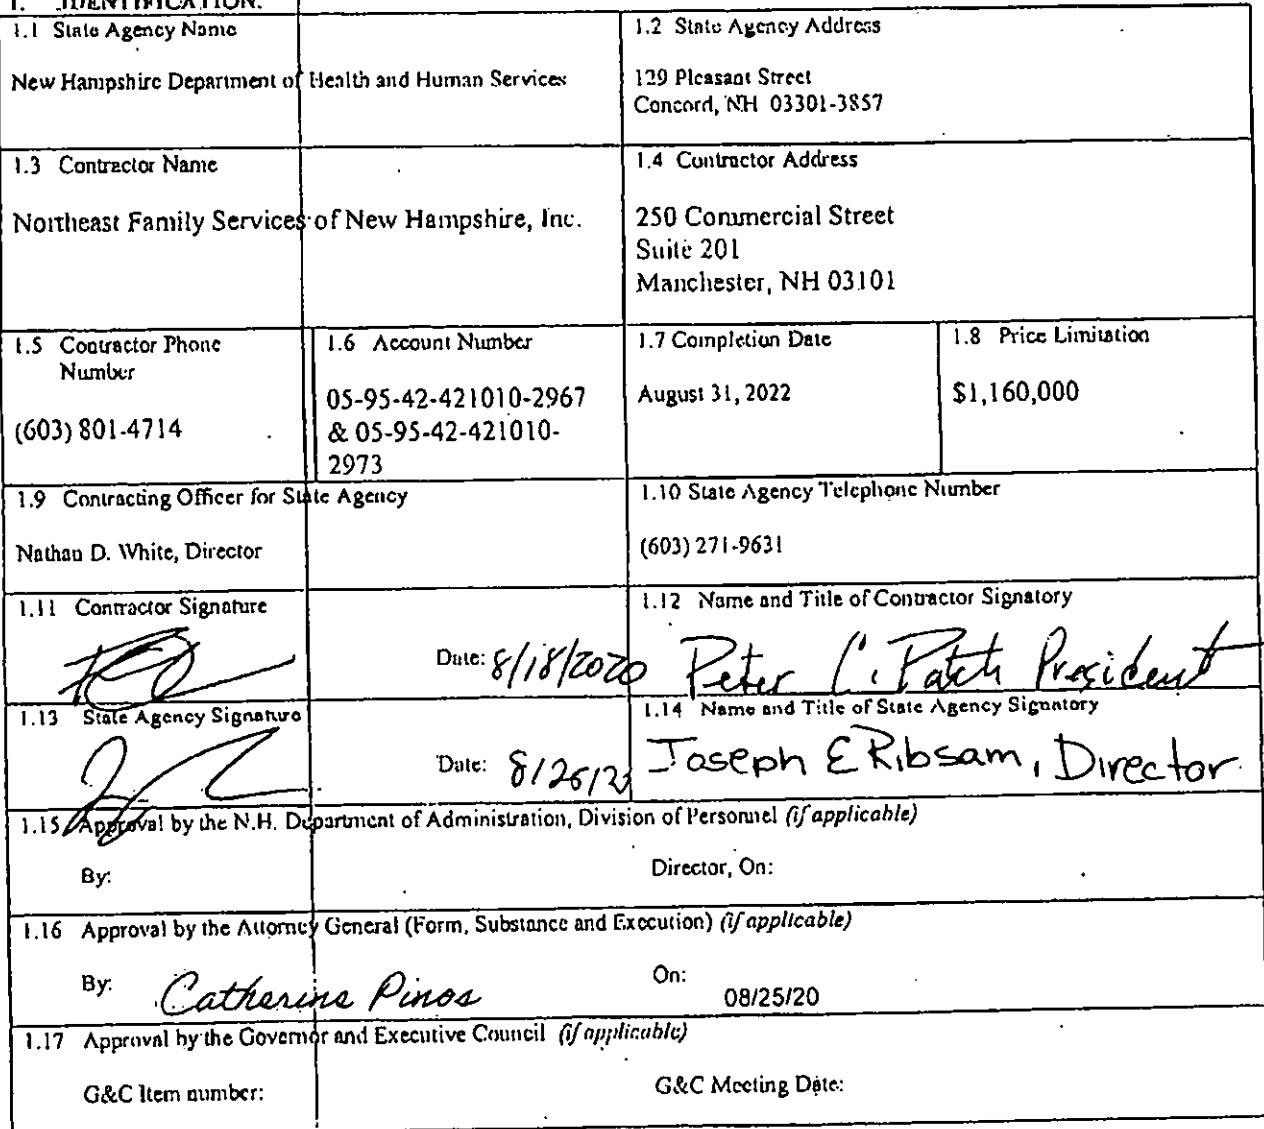 1. IDENTIFICATION.
1.1 State Agency Name
New Hampshire Department of Health and Human Services
1.2 State Agency Address
129 Pleasant Street
Concord, NH 03301-3857
1.3 Contractor Name
Northeast Family Services of New Hampshire, Inc.
1.4 Contractor Address
250 Commercial Street
Suite 201
Manchester, NH 03101
1.5 Contractor Phone
Number
(603) 801-4714
1.6 Account Number
05-95-42-421010-2967
& 05-95-42-421010-
2973
1.7 Completion Date
August 31, 2022
1.8 Price Limitation
$1,160,000
1.9 Contracting Officer for State Agency
Nathan D. White, Director
1.10 State Agency Telephone Number
(603) 271-9631
1.11 Contractor Signature
Date: 8/18/2020
1.12 Name and Title of Contractor Signatory
Peter C. Patch President
1.13 State Agency Signature
Date:
1.14 Name and Title of State Agency Signatory
Joseph E Ribsam, Director
1.15 Approval by the N.H. Department of Administration, Division of Personnel (if applicable)
By:
Director, On:
1.16 Approval by the Attorney General (Form, Substance and Execution) (if applicable)
By: Catherine Pinos
On:
08/25/20
1.17 Approval by the Governor and Executive Council (if applicable)
G&C Item number:
G&C Meeting Date: